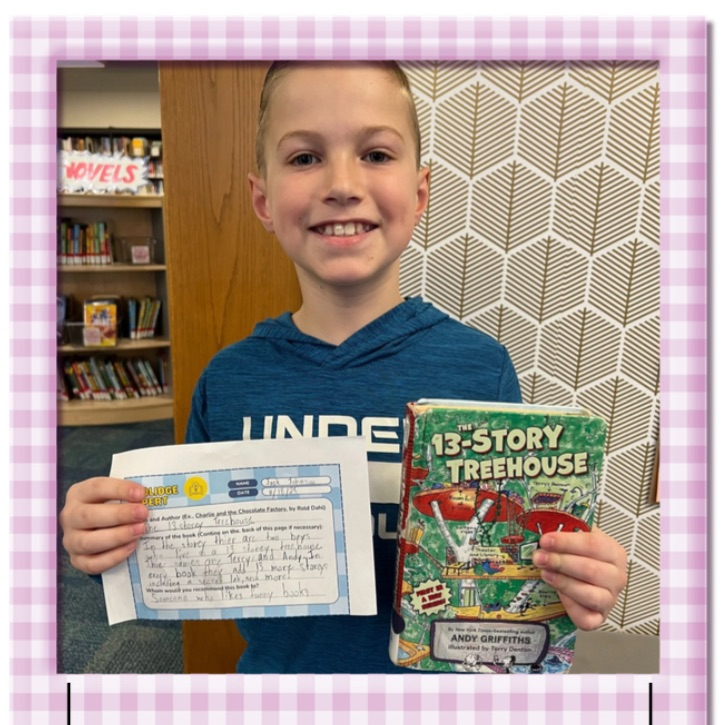 NOVELS
UNDE
THE
13-STORY
TREEHOUSE
By New York Times-bestselling author
ANDY GRIFFITHS
Illustrated by Terry Denton
OLIDGE
PERT
NAME
DATE
and Author (Ex., Charlie and the Chocolate Factory, by Roald Dahl)
13 storey Treehouse
ummary of the book (Continue on the back of this page if necessary):
In the storey thier are two boys
who live at a 13 storey treehouse
Thie names are Terry and Andy. In
every book they add 13 more storeys
including a secret lab, and more!
Whom would you recommend this book to?
Someone who likes funny books